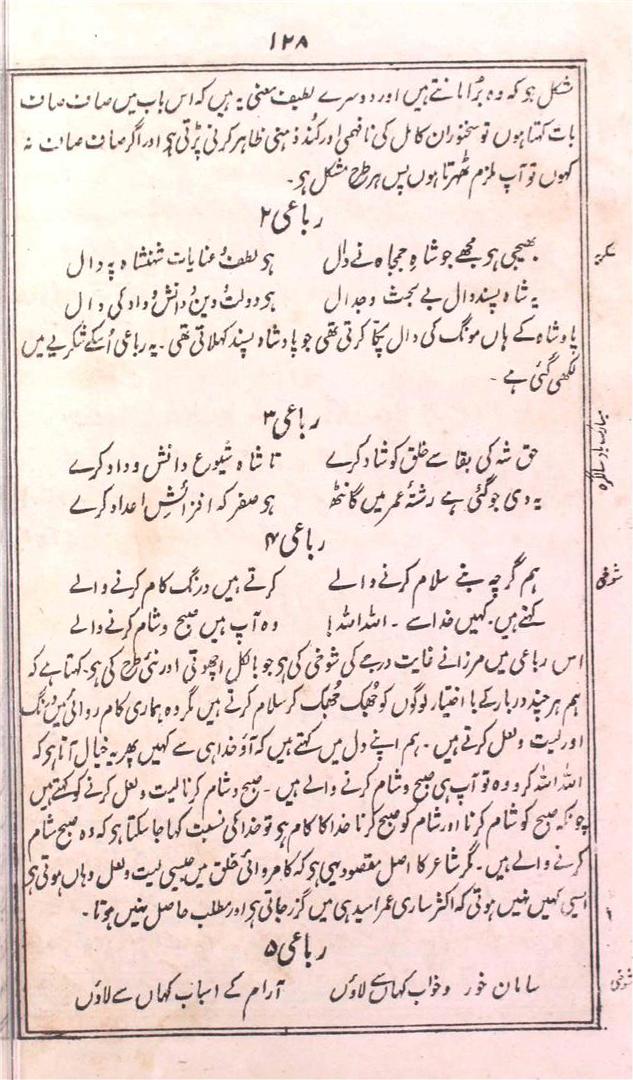 ۱۲۸
شکل ہو کہ وہ بُرا مانتے ہیں اور دوسرے لطیف معنی یہ ہیں کہ اس باب میں صاف صاف
بات کہتا ہوں تو سخنوران کامل کی نافہمی اور کُند ذہنی ظاہر کرنی پڑتی ہو اور اگر صاف صاف نہ
کہوں تو آپ ملزم ٹھہرتا ہوں پس ہر طرح مشکل ہو۔
رباعی ۲
بھیجی ہو مجھے جو شاہِ جمجاہ نے دال ہو لطف و عنایات شہنشاہ پہ دال
یہ شاہ پسند دال بے بحث و جدال ہو دولت و دین و دانش و داد کی دال
پادشاہ کے ہاں مونگ کی دال پکا کرتی تھی جو پادشاہ پسند کہلاتی تھی۔ یہ رباعی اُسکے شکریے میں
لکھی گئی ہے۔
رباعی ۳
مبارکباد سالگرہ
حق شہ کی بقا سے خلق کو شاد کرے تا شاہ شیوع دانش و داد کرے
یہ دی جو گئی ہے رشتۂ عمر میں گانٹھ ہو صفر کہ افزائشِ اعداد کرے
رباعی ۴
شوخی
ہم گرچہ بنے سلام کرنے والے کرتے ہیں درنگ کام کرنے والے
کہتے ہیں۔ کہیں خدا سے۔ اللہ اللہ! وہ آپ ہیں صبح و شام کرنے والے
اس رباعی میں مرزا نے غایت درجے کی شوخی کی ہو جو بالکل اچھوتی اور نئی طرح کی ہو۔ کہتا ہے کہ
ہم ہر چند دربار کے با اختیار لوگوں کو جُھک جُھک کر سلام کرتے ہیں مگر وہ ہماری کام روائی میں درنگ
اور لیت و لعل کرتے ہیں۔ ہم اپنے دل میں کہتے ہیں کہ آؤ خدا ہی سے کہیں پھر یہ خیال آتا ہو کہ
اللہ اللہ کرو وہ تو آپ ہی صبح و شام کرنے والے ہیں۔ صبح و شام کرنا لیت و لعل کرنے کو کہتے ہیں
چونکہ صبح کو شام کرنا اور شام کو صبح کرنا خدا کا کام ہو تو خدا کی نسبت کہا جا سکتا ہو کہ وہ صبح شام
کرنے والے ہیں۔ مگر شاعر کا اصل مقصود یہی ہو کہ کامروائی خلق میں جیسی لیت و لعل وہاں ہوتی ہو
ایسی کہیں نہیں ہوتی کہ اکثر ساری عمر امید ہی میں گزر جاتی ہو اور مطلب حاصل نہیں ہوتا۔
رباعی ۵
شوخی
سامان خور و خواب کہاں سے لاؤں آرام کے اسباب کہاں سے لاؤں